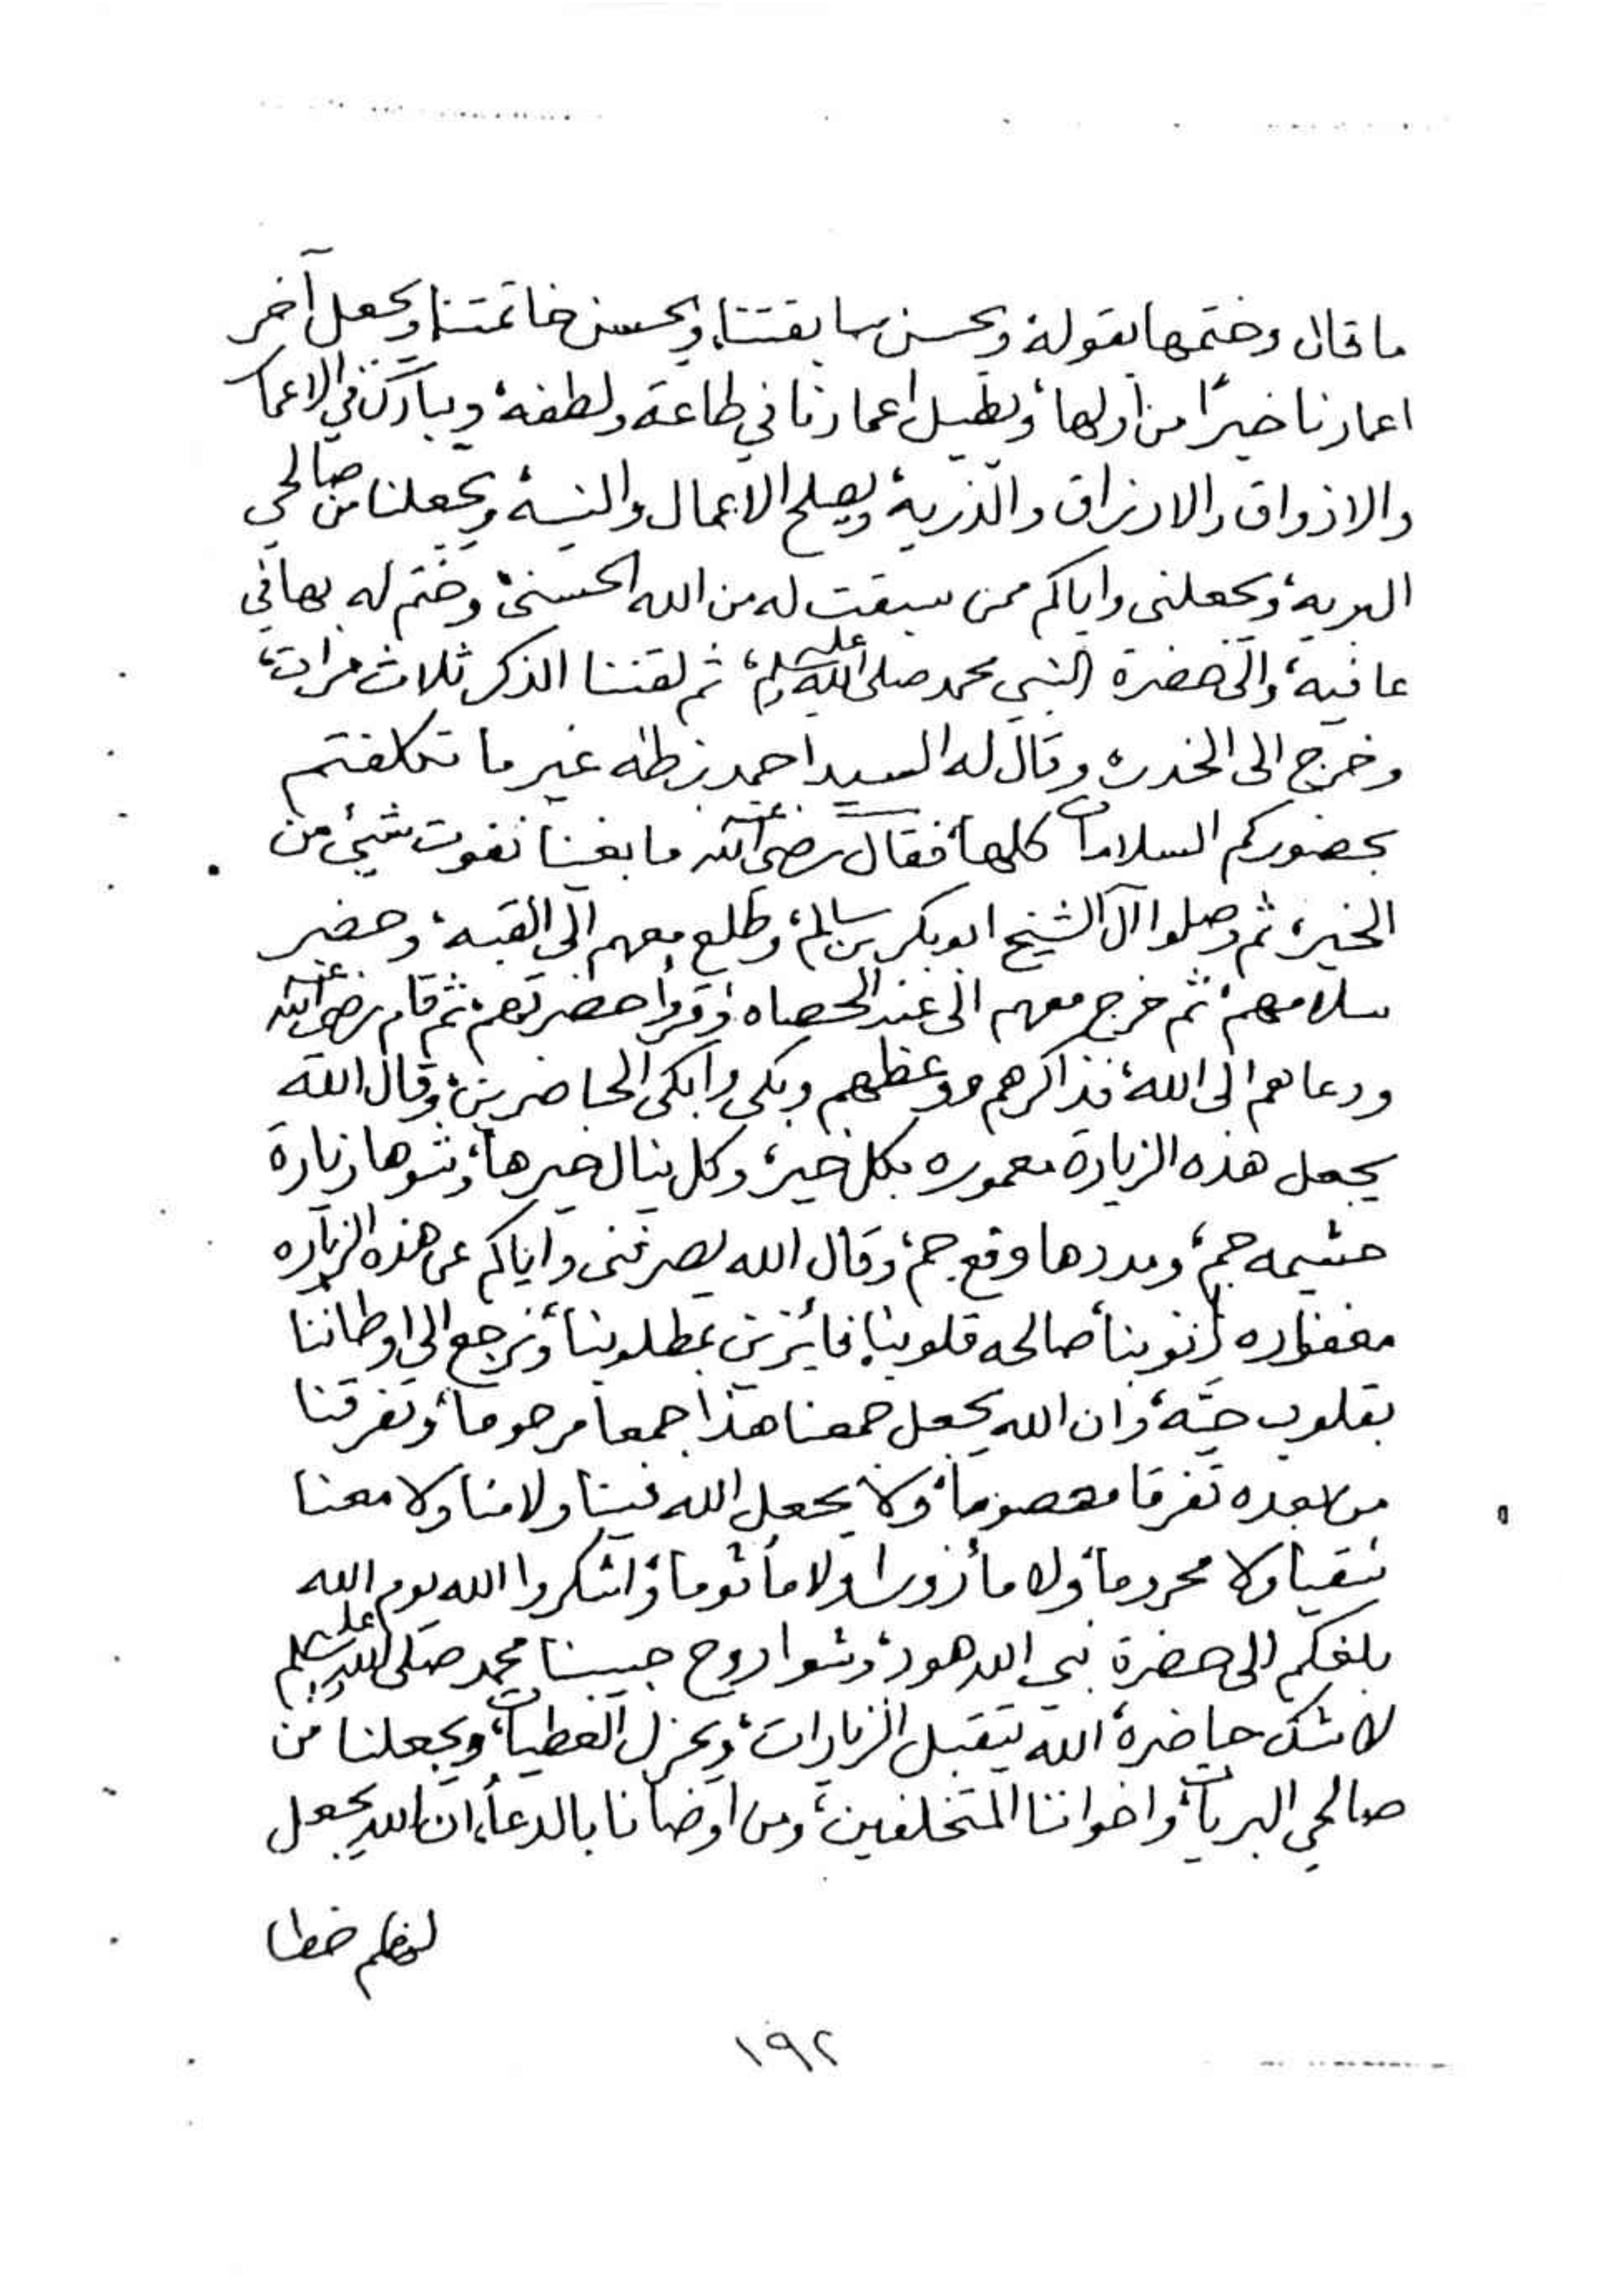 ما قال وختمها بقوله، ويحسن سابقتنا، ويحسن خاتمتنا، ويجعل آخر
اعمارنا خيرًا من اولها، ويطيل اعمارنا في طاعة ولطفه، ويبارك في الاعمار
والاذواق والارزاق والذرية، ويصلح الاعمال والنية، ويجعلنا من صالحي
البرية، ويجعلنى واياكم ممن سبقت له من الله الحسنى، وختم له بها في
عافية، والى حضرة النبي محمد صلى الله عليه وسلم، ثم لقننا الذكر ثلاث مرات،
وخرج الى الخدره وقال له السيد احمد بن طه غير ما تكلفتم
بحضوركم السلامات كلها، فقال رضي الله عنه ما بغينا نفوت شيئ من
الخير، ثم وصلوا آل الشيخ ابوبكر بن سالم، وطلع معهم الى القبة، وحضر
سلامهم، ثم خرج معهم الى عند الحصاه، وقرأوا حضرتهم، ثم قام رضي الله عنه
ودعا لهم الى الله، فذاكرهم ووعظهم وبكى وابكى الحاضرين، وقال الله
يجعل هذه الزيارة معموره بكل خير، وكل ينال خيرها، وشوها زيارة
حشيمه جم، ومددها وقع جم، وقال الله يصرفنى واياكم عن هذه الزياره
مغفوره ذنوبنا، صالحه قلوبنا، فائزين بمطلوبنا، ونرجع الى اوطاننا
بقلوب حيّة، وان الله يجعل جمعنا هذا جمعا مرحوما، وتفرقنا
من بعده تفرقا معصوما، ولا يجعل الله فينا ولا منا ولا معنا
شقيا ولا محروما، ولا مأزورا ولا مأثوما، واشكروا الله يوم الله
بلغكم الى حضرة نبي الله هود، وشوا روح حبيبنا محمد صلى الله عليه وسلم
لا شك حاضرة، الله يتقبل الزيارات، ويجزل العطيات، ويجعلنا من
صالحي البريات، واخواننا المتخلفين، ومن اوصانا بالدعاء، ان الله يجعل
لهم
١٩٢